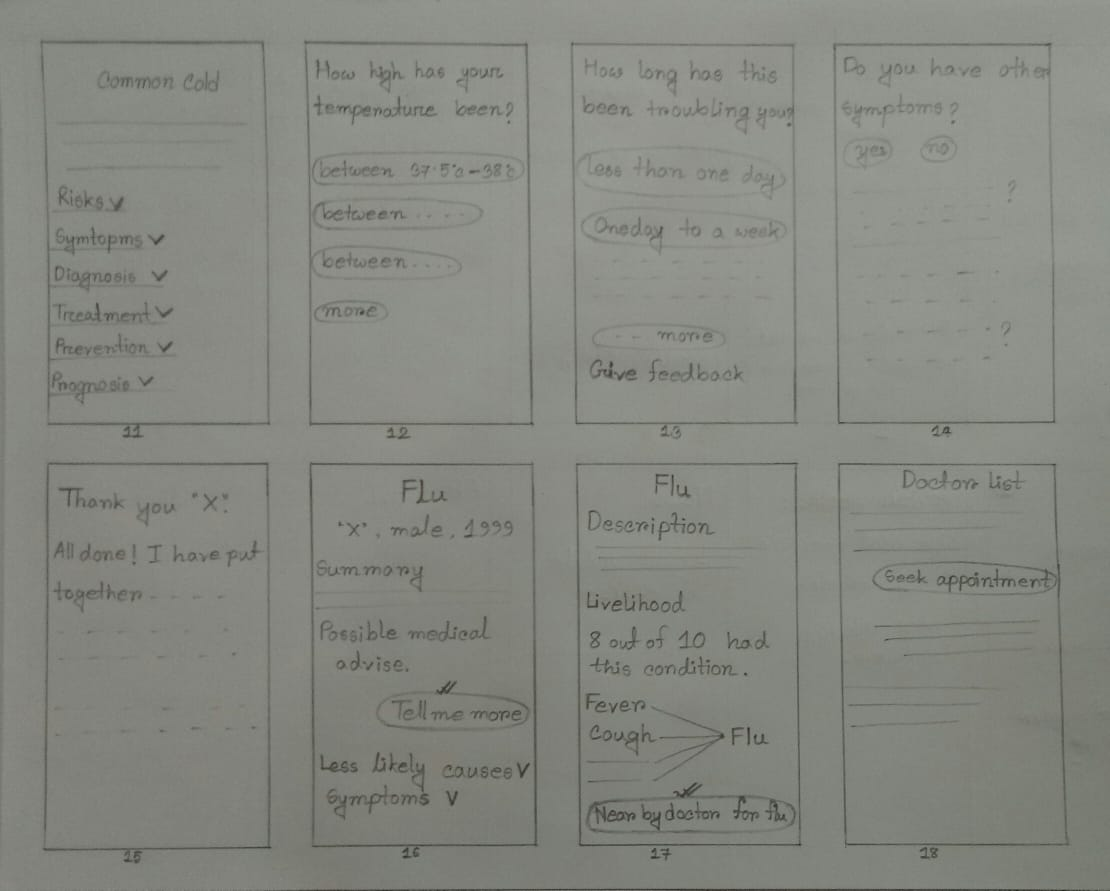 Common Cold
Risks
Symtopms
Diagnosis
Treatment
Prevention
Prognosis
11
How high has your
temperature been?
between 37.5°c - 38°c
between ....
between ....
more
12
How long has this
been troubling you?
less than one day
One day to a week
-- more
Give feedback
13
Do you have other
symptoms?
yes no
?
?
14
Thank you "X".
All done! I have put
together - - - -
15
FLu
"X", male, 1999
Summary
Possible medical
advise.
Tell me more
Less likely causes
Symptoms
16
Flu
Description
Livelihood
8 out of 10 had
this condition.
Fever
Cough Flu
Near by doctor for flu
17
Doctor list
Seek appointment
18